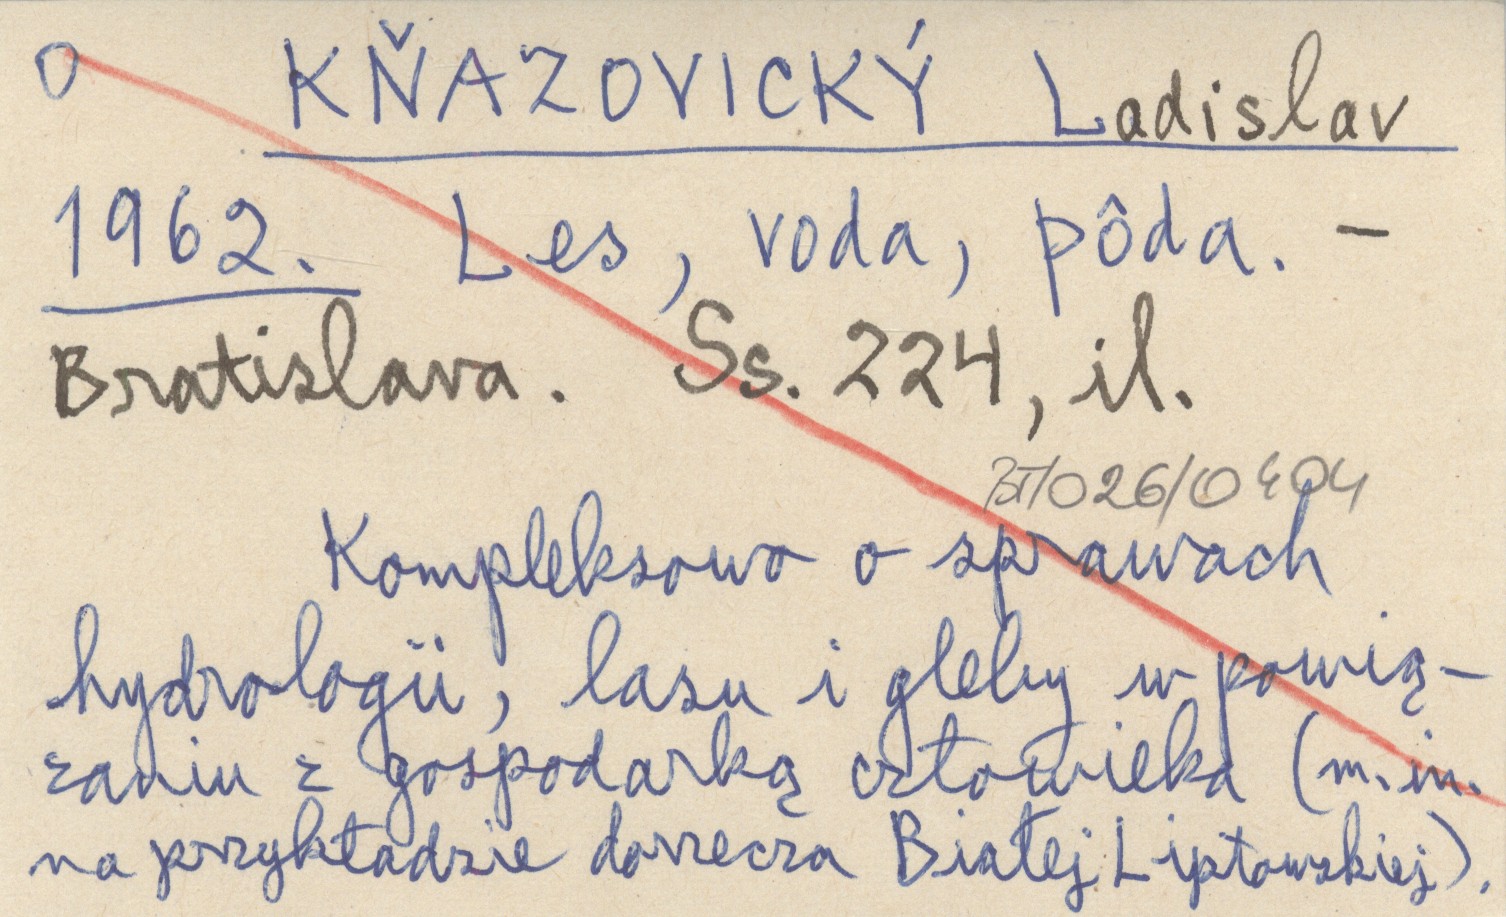 O KŇAZOVICKÝ Ladislav
1962. Les, voda, pôda. –
Bratislava. Ss. 224, il.
026/0404
Kompleksowo o sprawach
hydrologii, lasu i gleby w powią-
zaniu z gospodarką człowieka (m.in.
na przykładzie dorzecza Białej Liptowskiej).